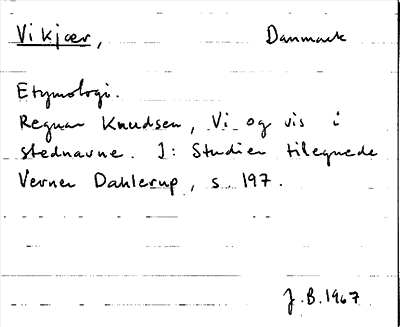 Vikjær, Danmark
Etymologi.
Regnar Knudsen, Vi og vis i
stednavne. I: Studier tilegnede
Verner Dahlerup, s. 197.
J.B. 1967